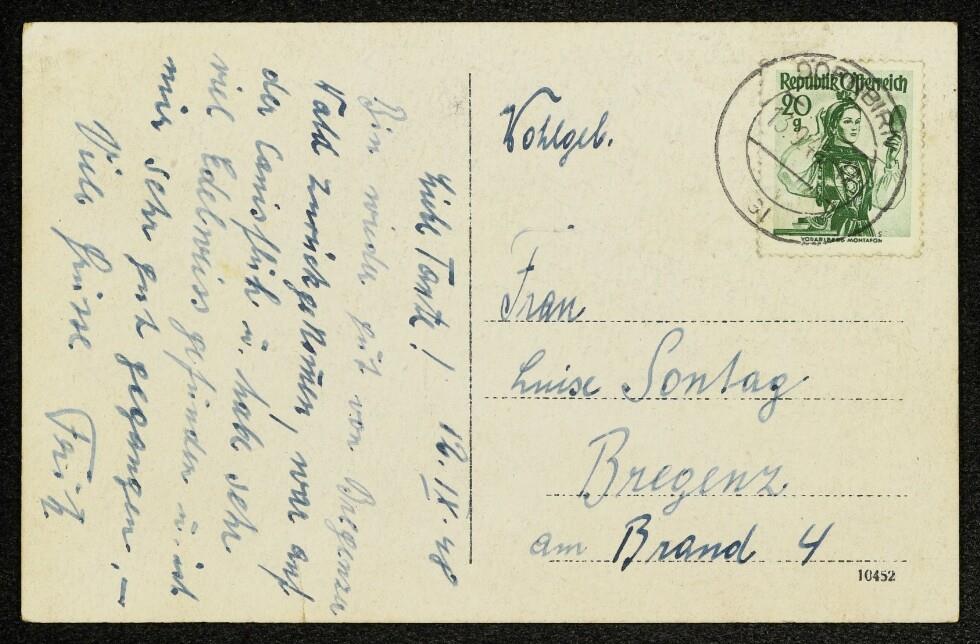 Liebe Tante! 12.IX.48
Bin wieder gut von Bregenzer
Wald zurückgekomen, war auf
der Canisfluh u. habe sehr
viel Edelweiss gefunden u. ist
mir sehr gut gegangen. —
Viele Grüsse
Fritz
Wohlgeb.
Frau
Luise Sontag
Bregenz
am Brand 4
10452
Republik Österreich
20
g
VORARLBERG MONTAFON
DORNBIRN